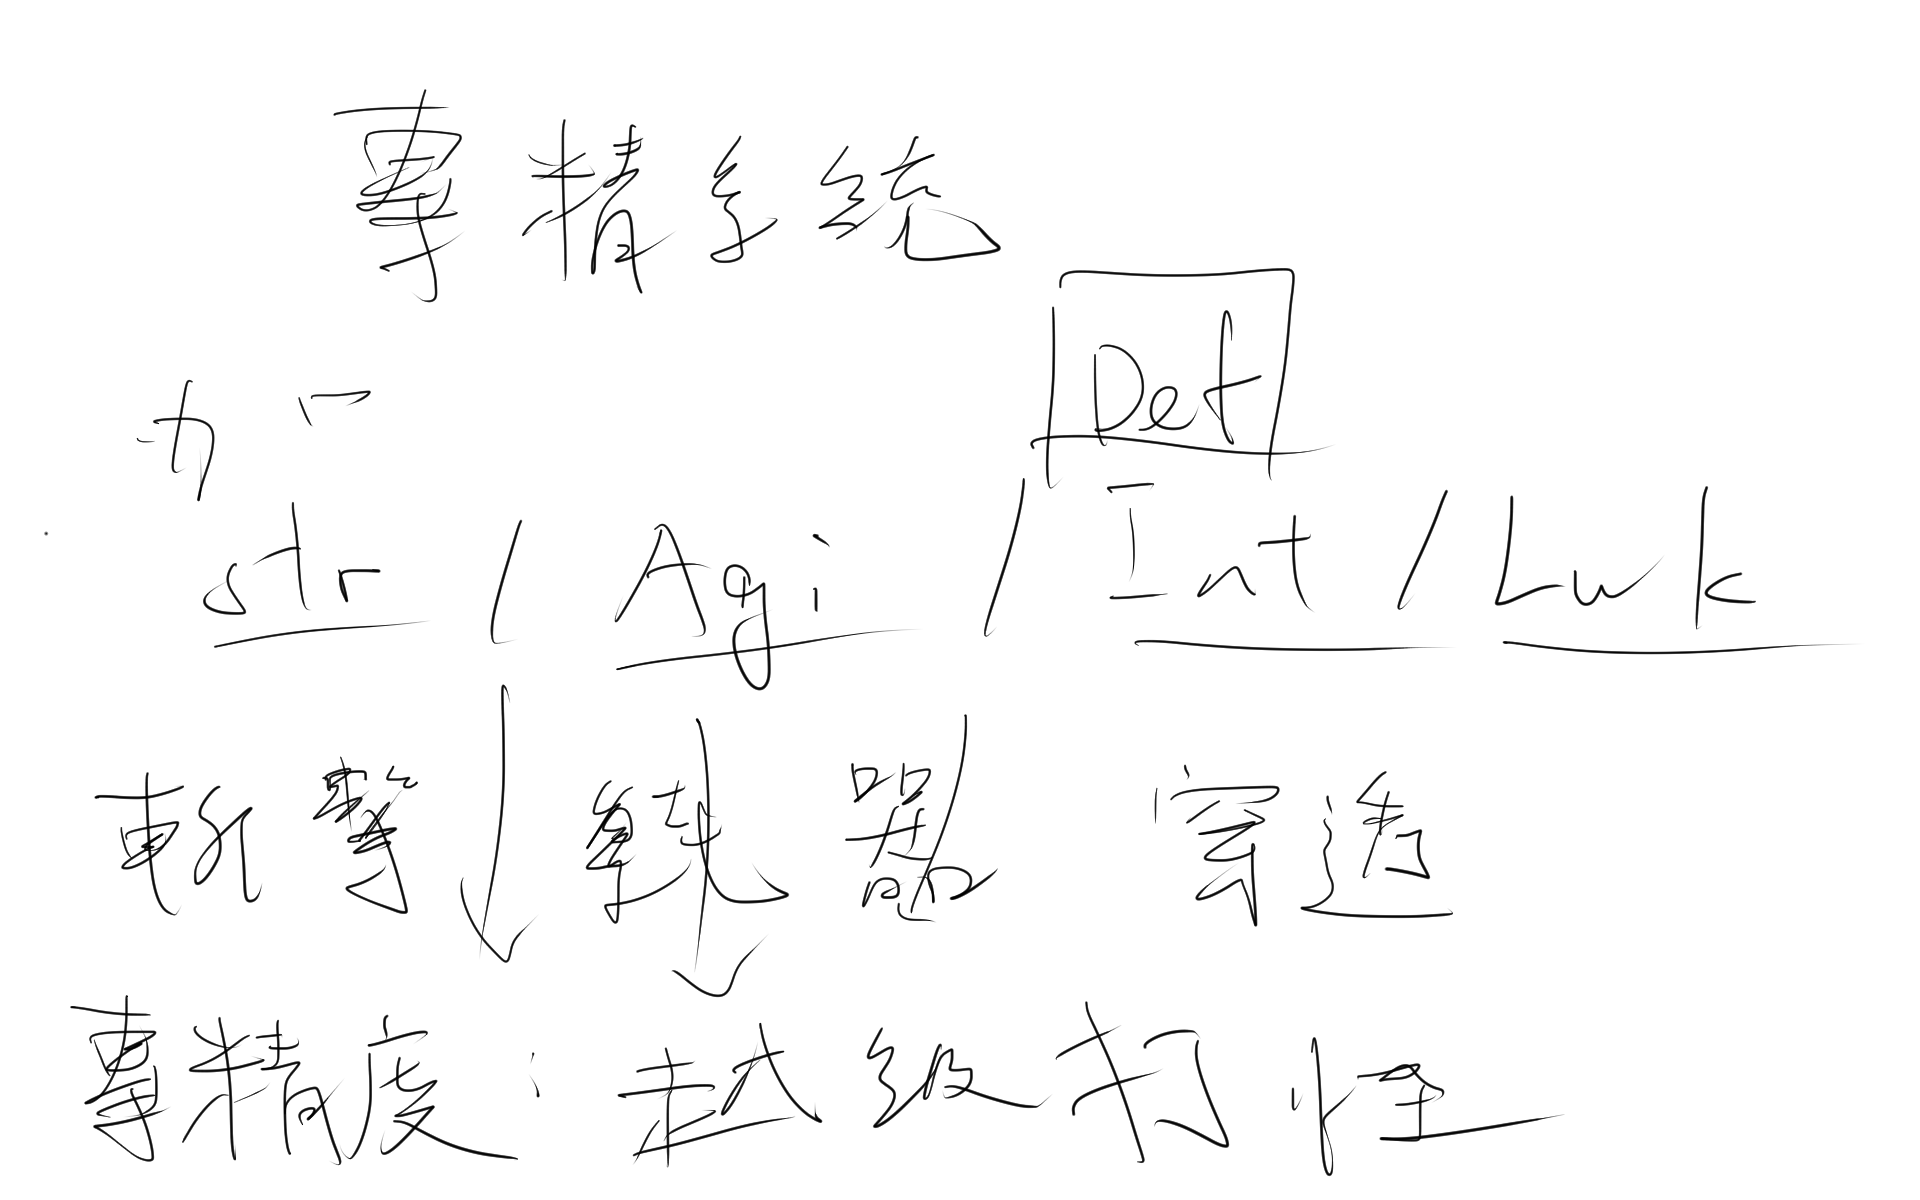 專精系統
Def
str / Agi / Int / Luk
斬擊 鈍器 穿透
專精度：越级打怪